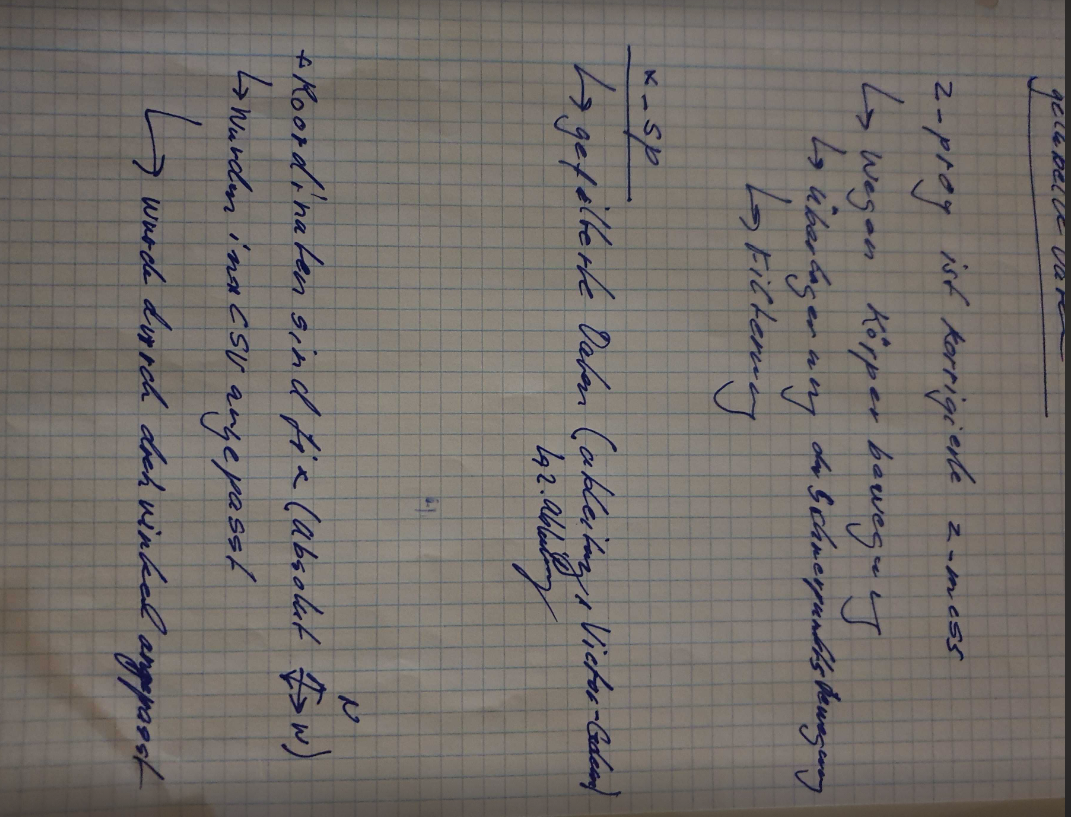 z-prog ist korrigierte z-mess
↳ Wegen Körper bewegung
↳ überlagerung der Schwerpunktsbewegung
↳ Filterung
x-sp
↳ gefilterte Daten (ableitung,
↳ 2. Ableitung
* Koordinaten sind fix (absolut N W)
↳ Wurden in CSV angepasst
↳ wurde durch drehwinkel angepasst